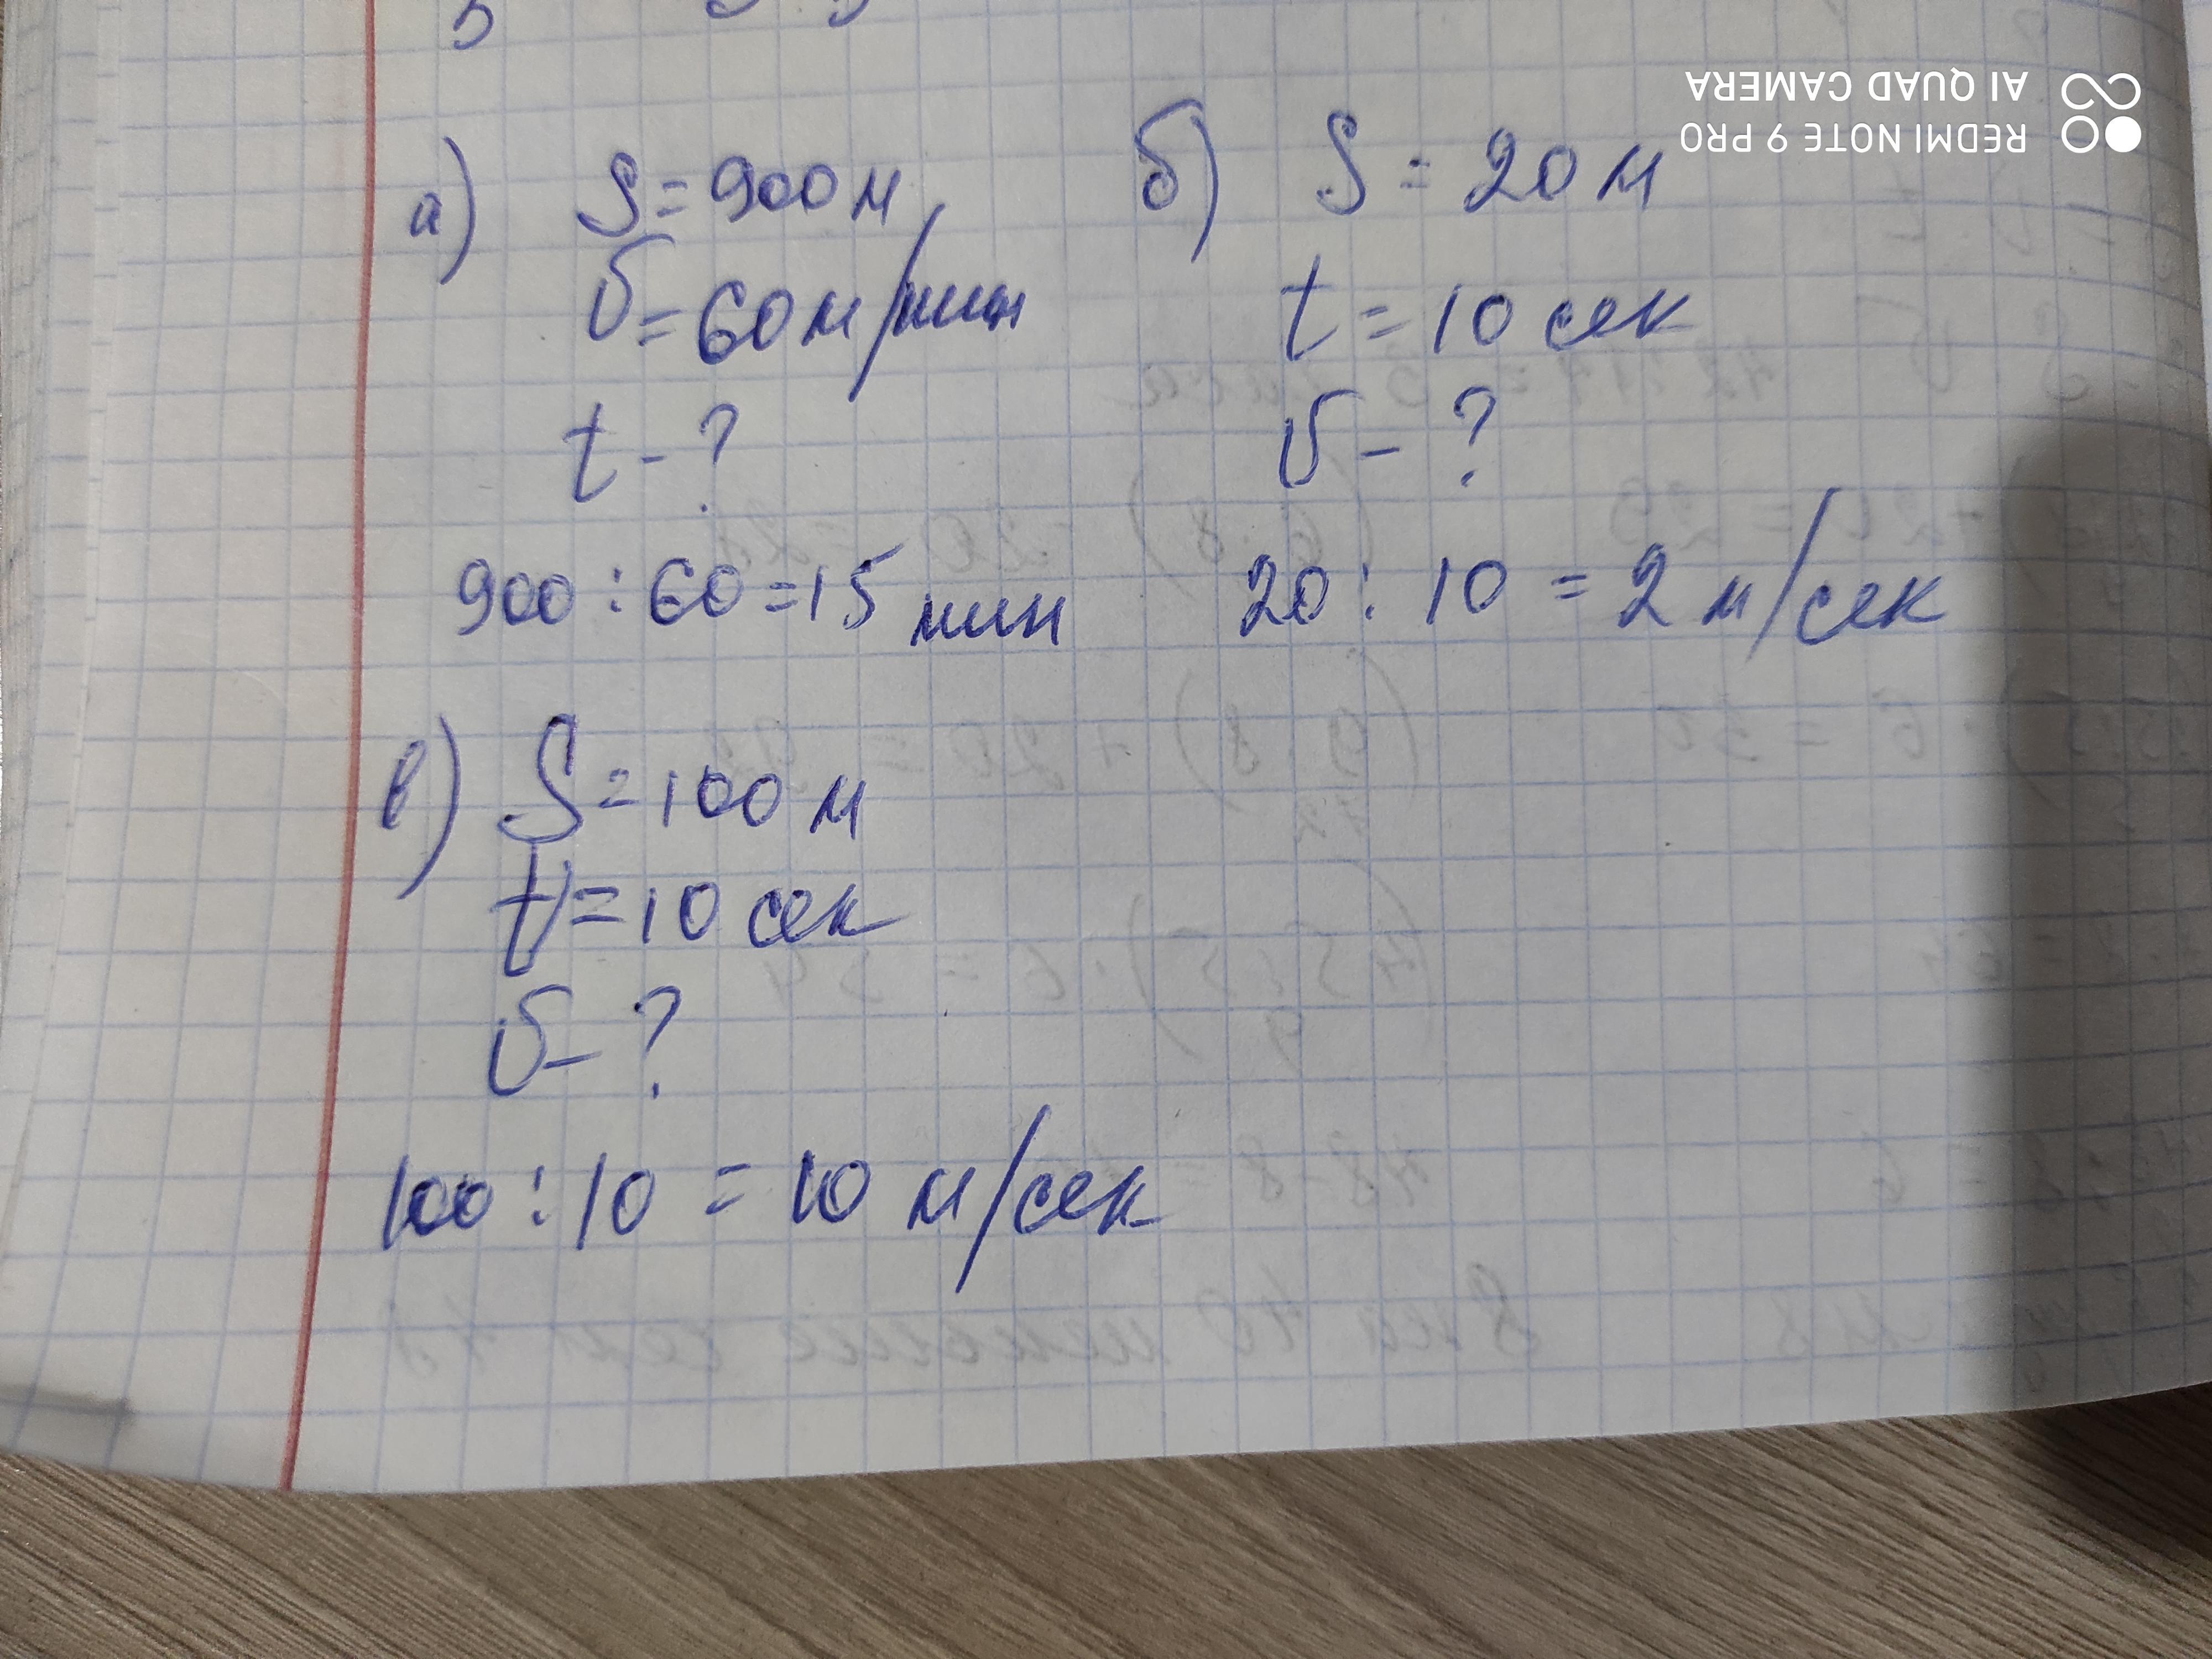 а) S = 900 м
v = 60 м/мин
t - ?
900 : 60 = 15 мин
б) S = 20 м
t = 10 сек
v - ?
20 : 10 = 2 м/сек
в) S = 100 м
t = 10 сек
v - ?
100 : 10 = 10 м/сек
REDMI NOTE 9 PRO
AI QUAD CAMERA